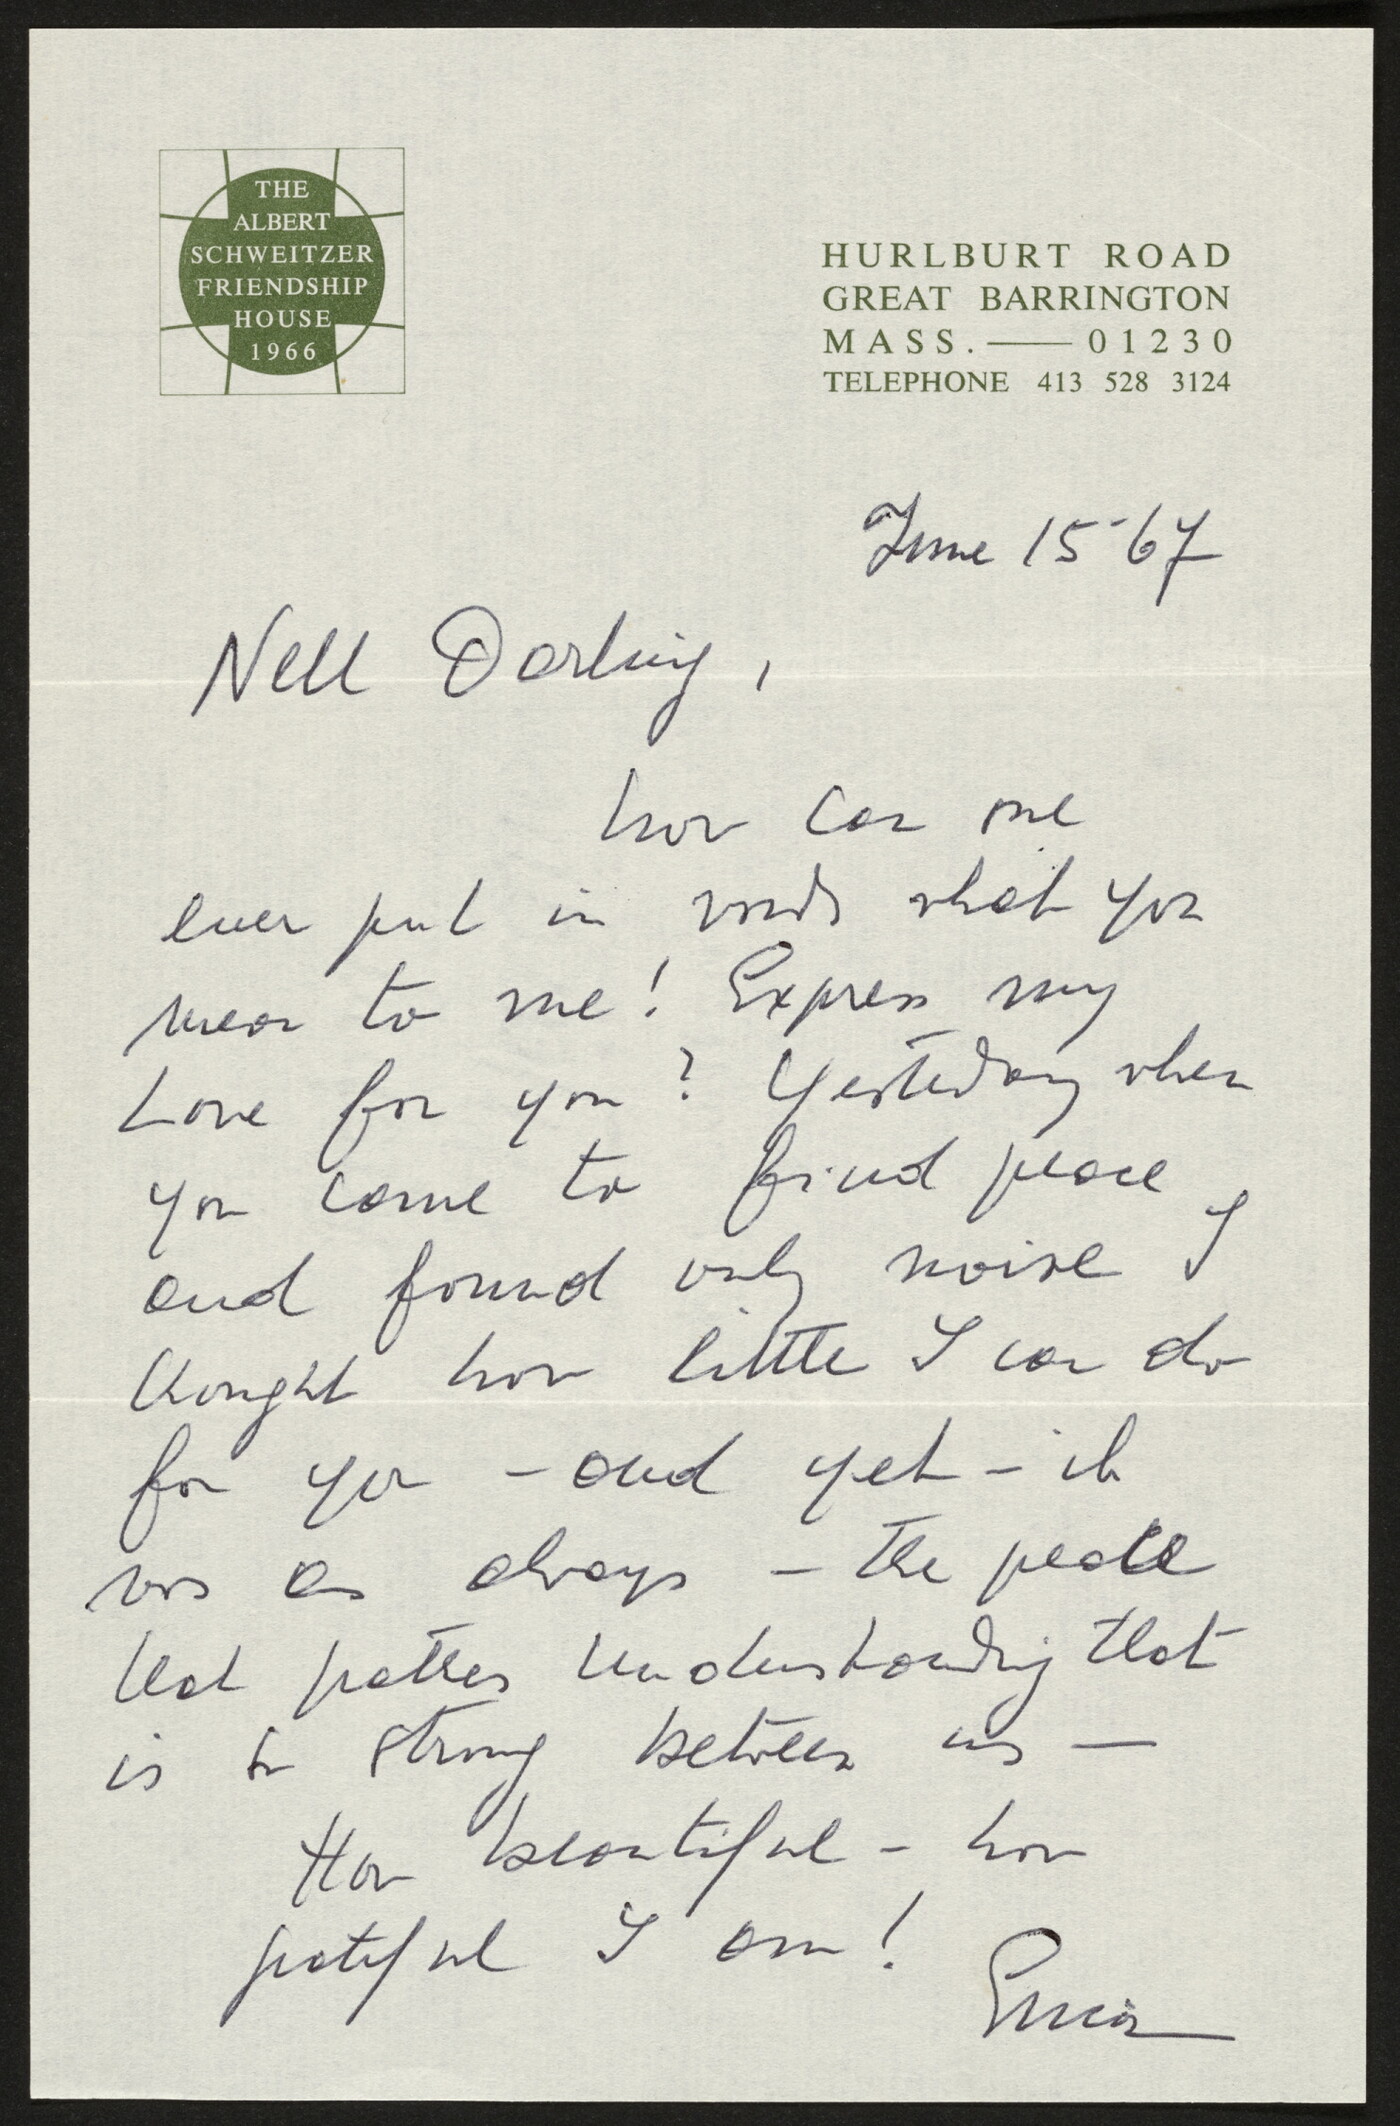 THE
ALBERT
SCHWEITZER
FRIENDSHIP
HOUSE
1966
HURLBURT ROAD
GREAT BARRINGTON
MASS. — 01230
TELEPHONE 413 528 3124
June 15-67
Nell Darling,
how can one
ever put in words what you
mean to me! Express my
Love for you? Yesterday when
you came to find peace
and found only noise I
thought how little I can do
for you - and yet - it
was as always - the peace
that passes understanding that
is so strong between us —
How beautiful - how
grateful I am!
Erica